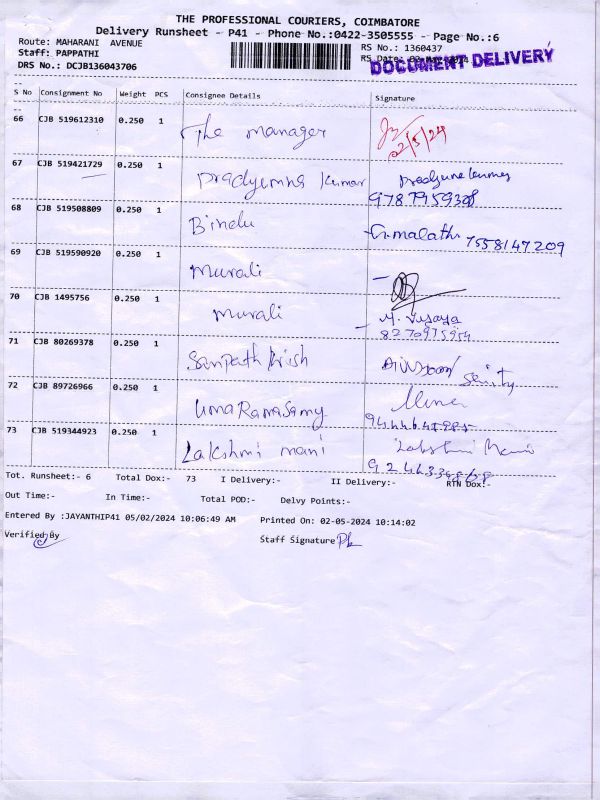 THE PROFESSIONAL COURIERS, COIMBATORE
Delivery Runsheet - P41 - Phone No.:0422-3505555 - Page No.:6
Route: MAHARANI AVENUE
RS No.: 1360437
Staff: PAPPATHI
RS Date:
DOCUMENT DELIVERY
DRS No.: DCJB136043706
S No Consignment No Weight PCS Consignee Details Signature
66 CJB 519612310 0.250 1 The manager 02/5/24
67 CJB 519421729 0.250 1 Pradyumna Kumar
68 CJB 519508809 0.250 1 Bindu G.malathi 7558147209
69 CJB 519590920 0.250 1 Murali
70 CJB 1495756 0.250 1 Murali
8270975954
71 CJB 80269378 0.250 1 Sanpath krish
72 CJB 89726966 0.250 1 Uma Ramasamy
73 CJB 519344923 0.250 1 Lakshmi mani Lakshmi Mani
Tot. Runsheet:- 6 Total Dox:- 73 I Delivery:- II Delivery:- RTN Dox:-
Out Time:- In Time:- Total POD:- Delvy Points:-
Entered By :JAYANTHIP41 05/02/2024 10:06:49 AM Printed On: 02-05-2024 10:14:02
Verified By Staff Signature